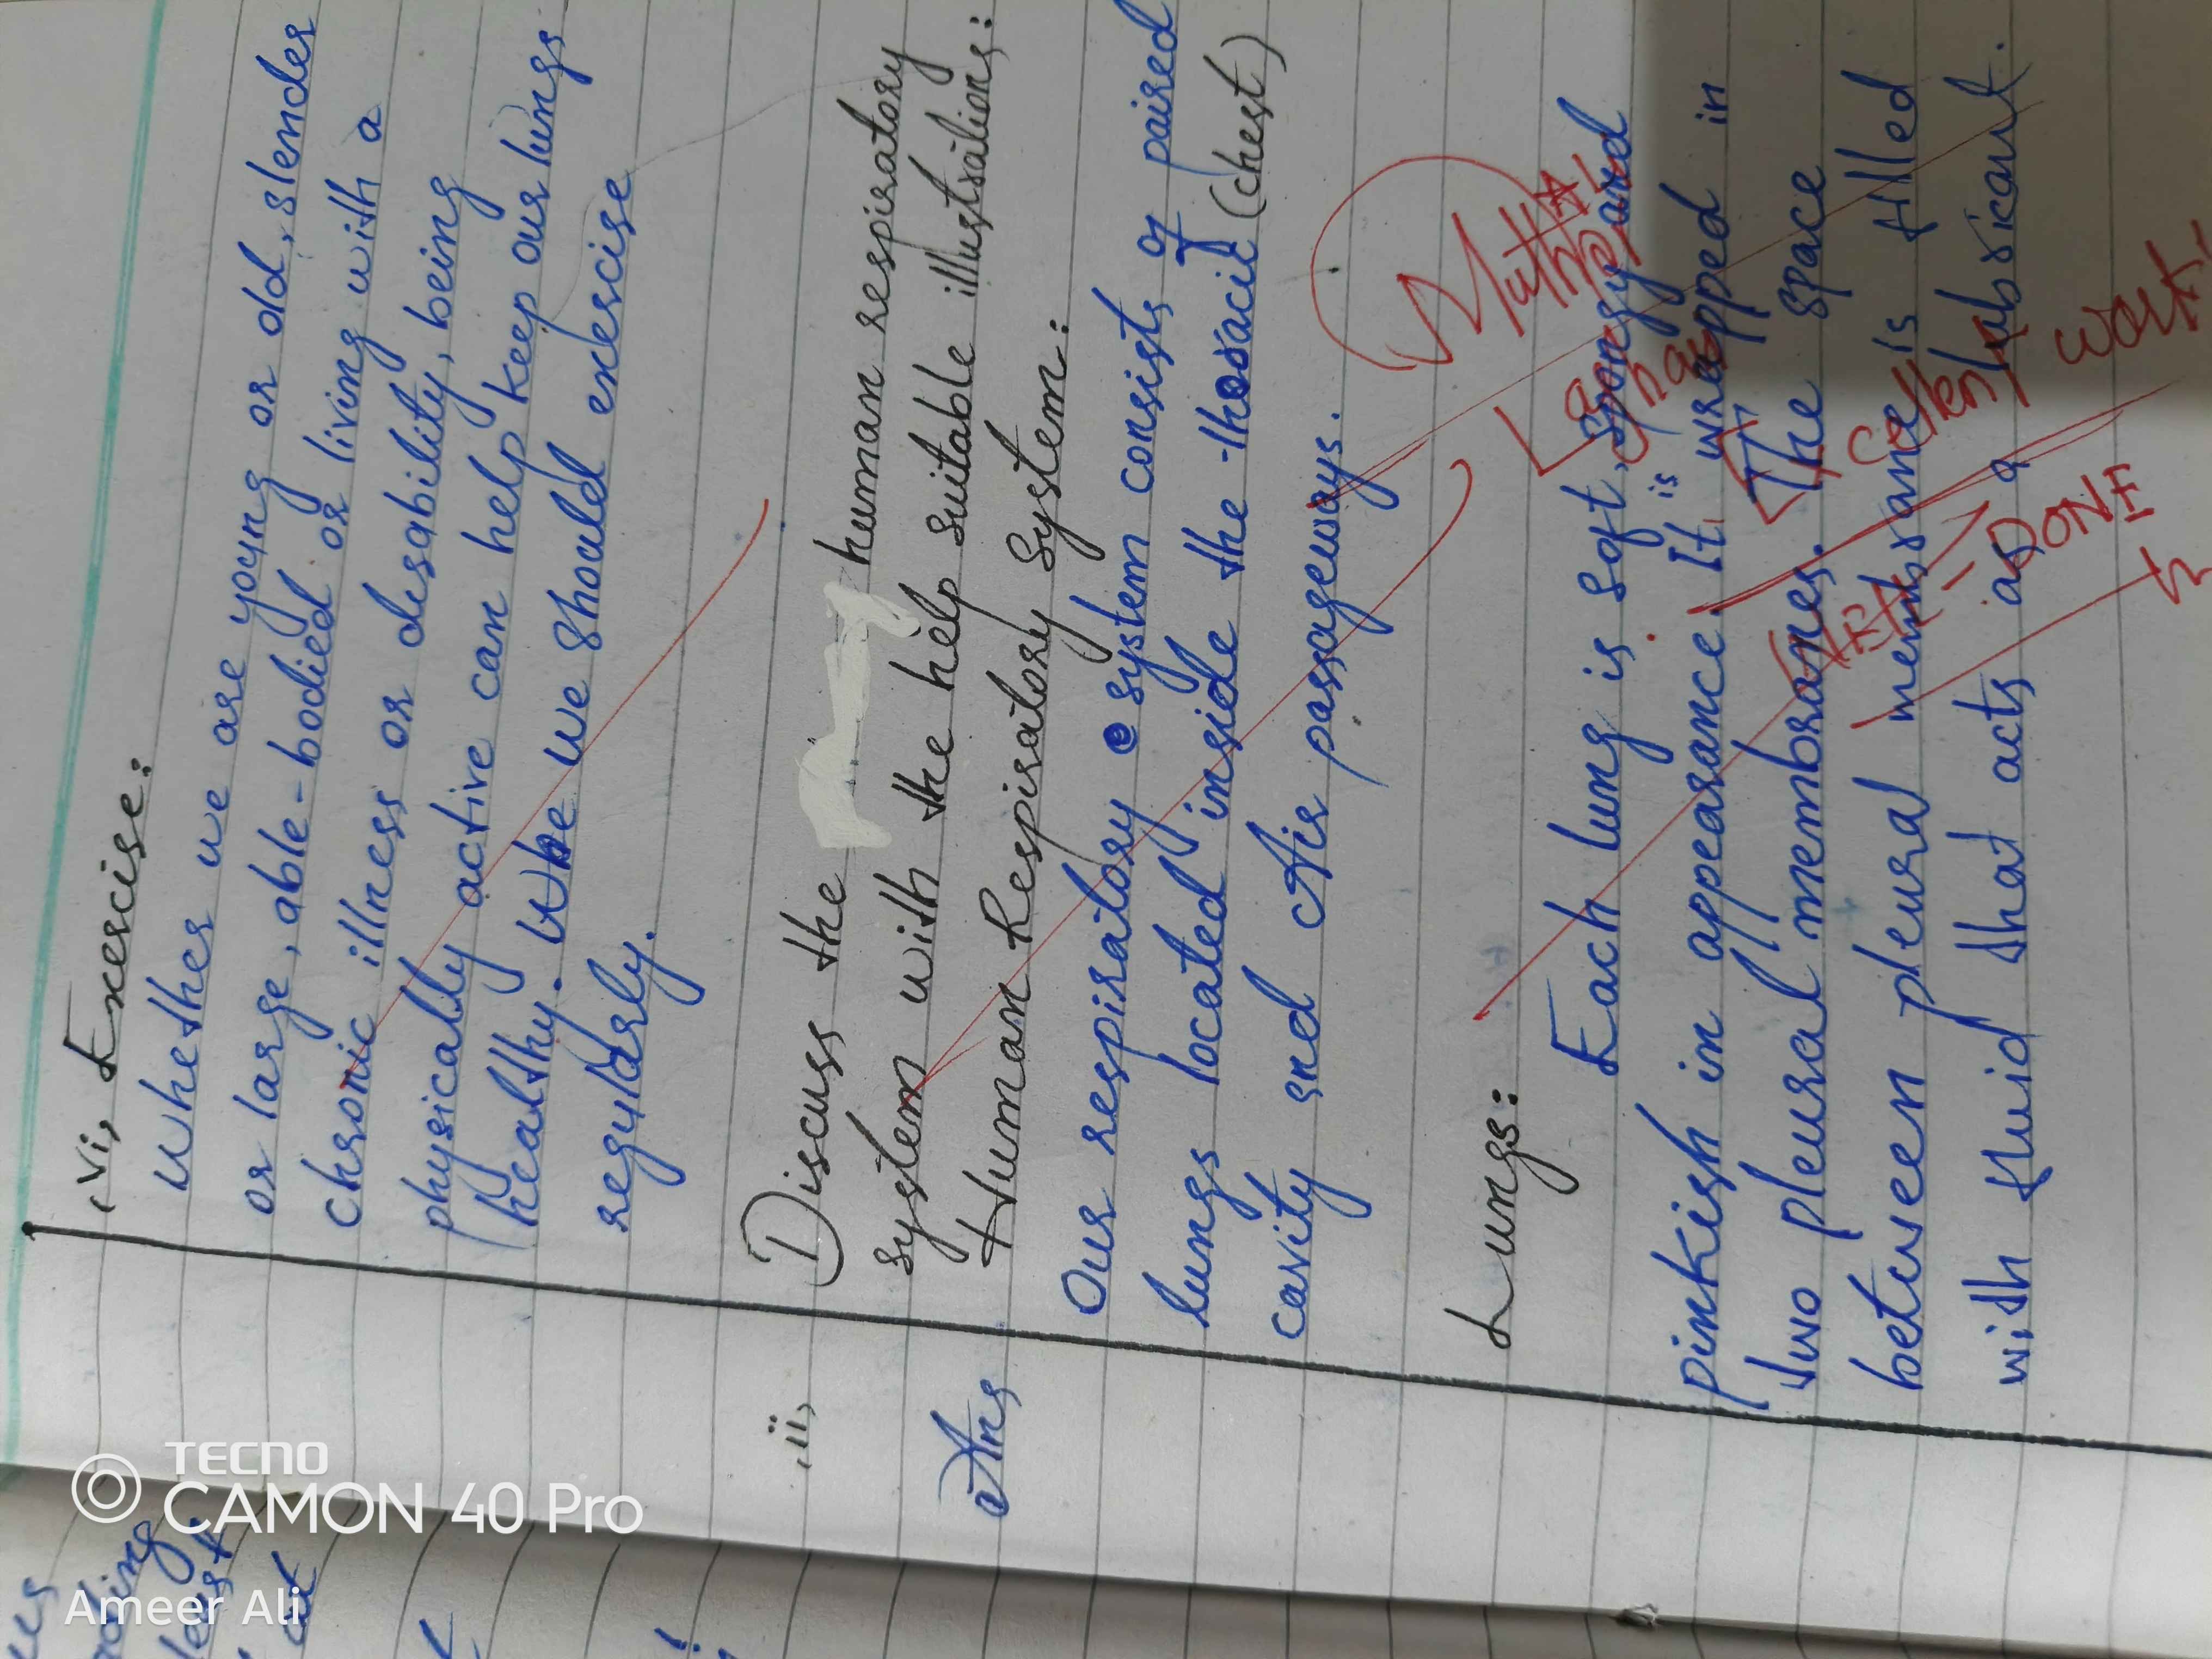 (vi) Exercise:
Whether we are young or old, slender
or large, able-bodied or living with a
chronic illness or disability, being
physically active can help keep our lungs
healthy. Whe we should exercise
regularly.
(ii) Discuss the human respiratory
system with the help suitable illustrations:
Ans Human Respiratory System:
Our respiratory system consists of paired
lungs located inside the thoracic (chest)
cavity and Air passageways.
Lungs:
Each lung is soft, spongy and
pinkish in appearance. It is wrapped in
two pleural membranes. The space
between pleural membrane is filled
with fluid that acts as a lubricant.
Excellent work
DONE
TECNO
CAMON 40 Pro
Ameer Ali